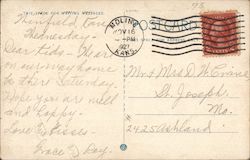 THIS SPACE FOR WRITING MESSAGES
POST CARD
Winfield, Kan
Wednesday-
Dear Kids- We are
on our way home
to there Saturday.
Hope you are well
and happy.
Love & Kisses
Grace & Ray.
MOLINE
NOV 16
-PM
1927
KANS.
Mr & Mrs D. W. Crane
St. Joseph,
Mo.
2425 Ashland